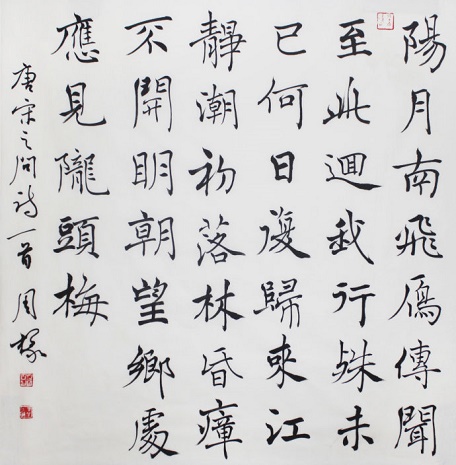 陽月南飛鴈傳聞
至此迴我行殊未
已何日復歸來江
靜潮初落林昏瘴
不開明朝望鄉處
應見隴頭梅
唐宋之問詩一首